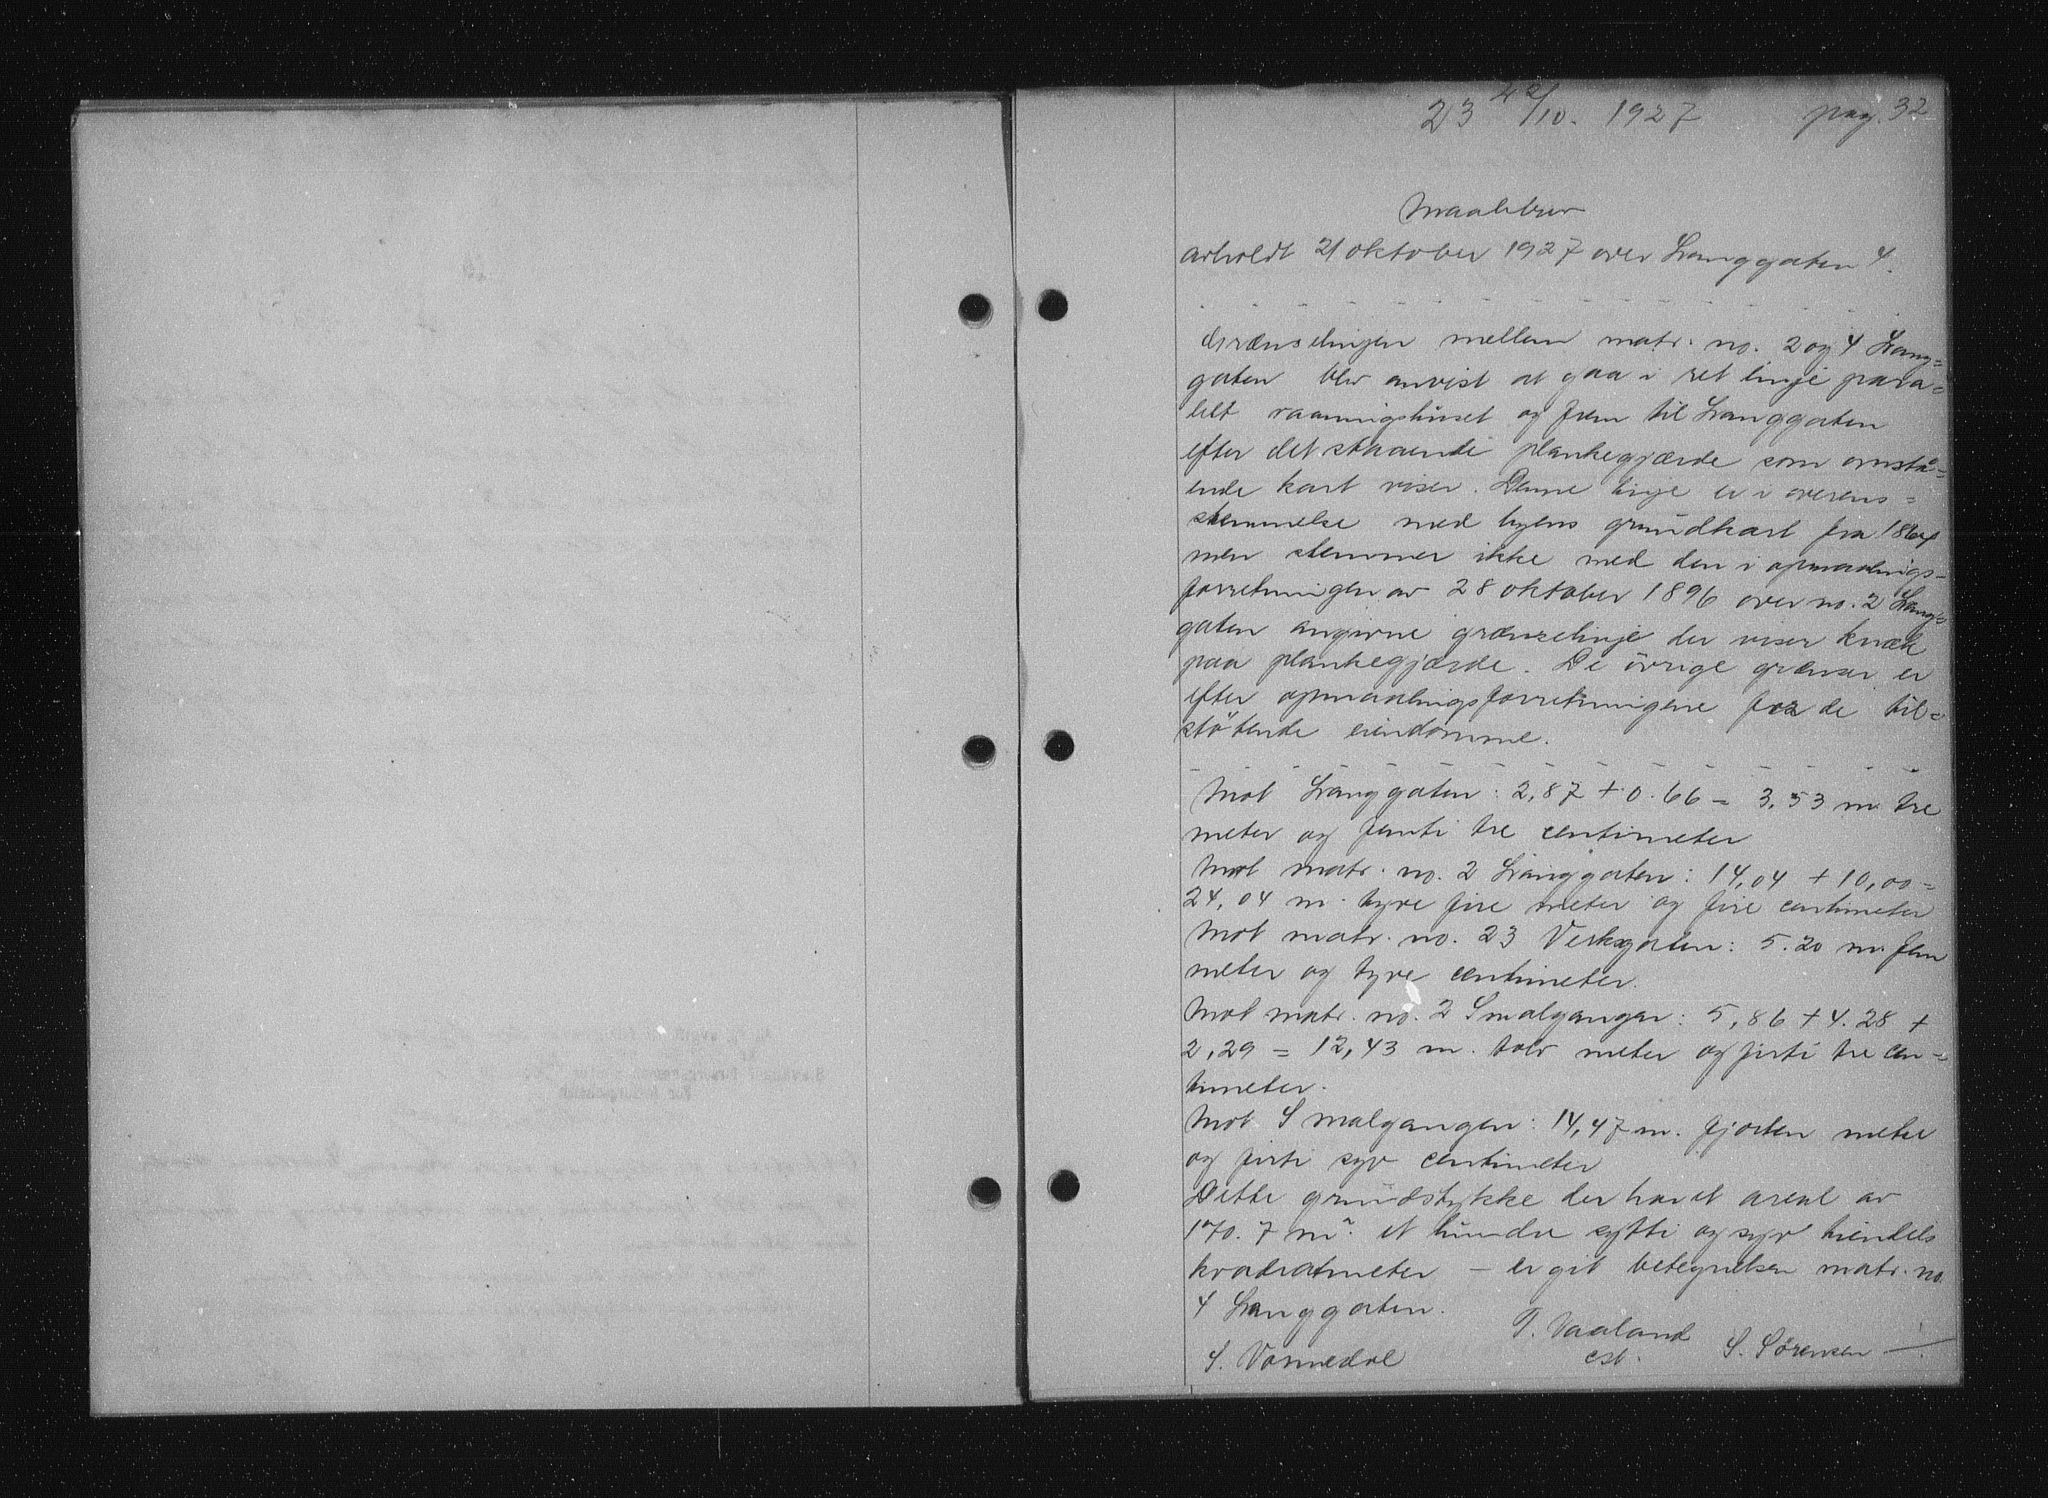 23 42/10. 1927 pag. 32
Maalebrev
avholdt 21 oktober 1927 over Langgaten 4.
Grænselinjen mellem matr. no. 2 og 4 Lang=
gaten blev anvist at gaa i ret linje para=
lelt vaaningshuset og frem til Langgaten
efter det staaende plankegjærde som omstå=
ende kart viser. Denne linje er i overens=
stemmelse med byens grundkart fra 1864
men stemmer ikke med den i opmaalings=
forretningen av 28 oktober 1896 over no. 2 Lang=
gaten angivne grænselinje der viser knæk
paa plankegjærde. De övrige grænser er
efter opmaalingsforretningene for de til=
stötende eiendomme.
Mot Langgaten: 2,87 + 0.66 = 3.53 m tre
meter og femti tre centimeter
Mot matr. no. 2 Langgaten: 14,04 + 10,00 =
24,04 m. tyve fire meter og fire centimeter
Mot matr. no. 23 Verksgaten: 5.20 m. fem
meter og tyve centimeter.
Mot matr. no. 2 Smalgangen: 5,86 + 4.28 +
2,29 = 12,43 m. tolv meter og firti tre cen=
timeter.
Mot Smalgangen: 14,47 m. fjorten meter
og firti syv centimeter
Dette grundstykke der har et areal av
170.7 m². et hundre sytti og syv tiendels
kvadratmeter – er git betegnelsen matr. no.
4 Langgaten.
T. Vaaland
S. Sørensen
cst.